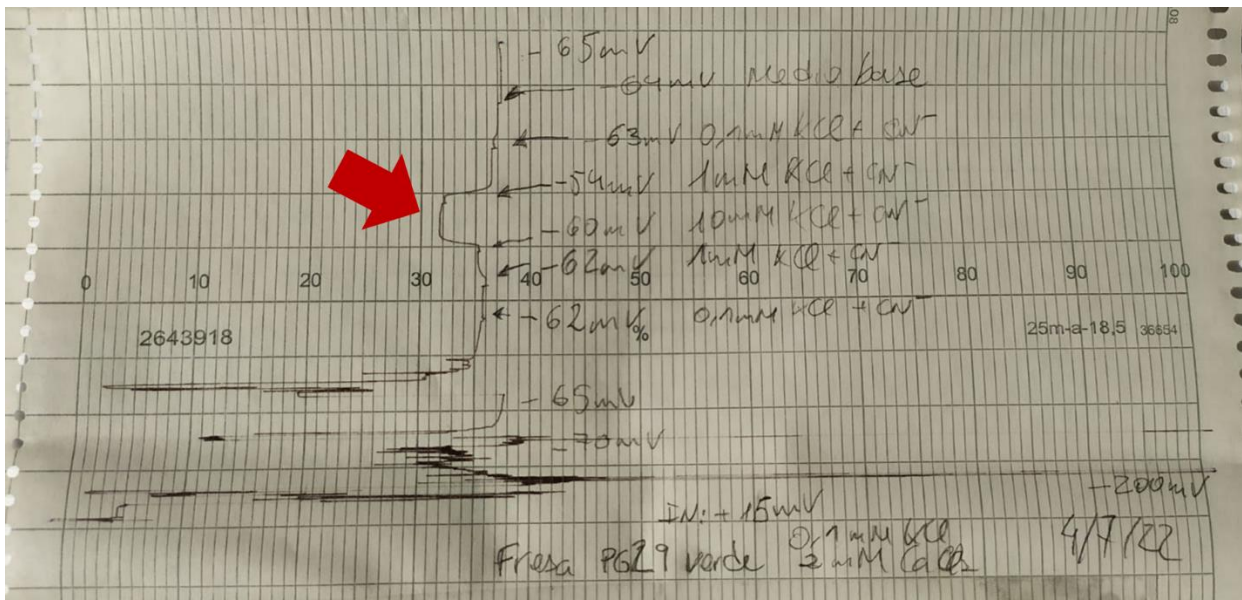 -65mV
-64mV Medio base
-63mV 0,1mM KCl + CN⁻
-54mV 1mM KCl + CN⁻
-60mV 10mM KCl + CN⁻
-62mV 1mM KCl + CN⁻
0 10 20 30 40 50 60 70 80 90 100
-62mV 0,1mM KCl + CN⁻
%
2643918 25m-a-18,5 36654
-65mV
-70mV
-200mV
IN: +15mV
0,1mM KCl 4/7/22
Fresa PG29 verde 2mM CaCl2